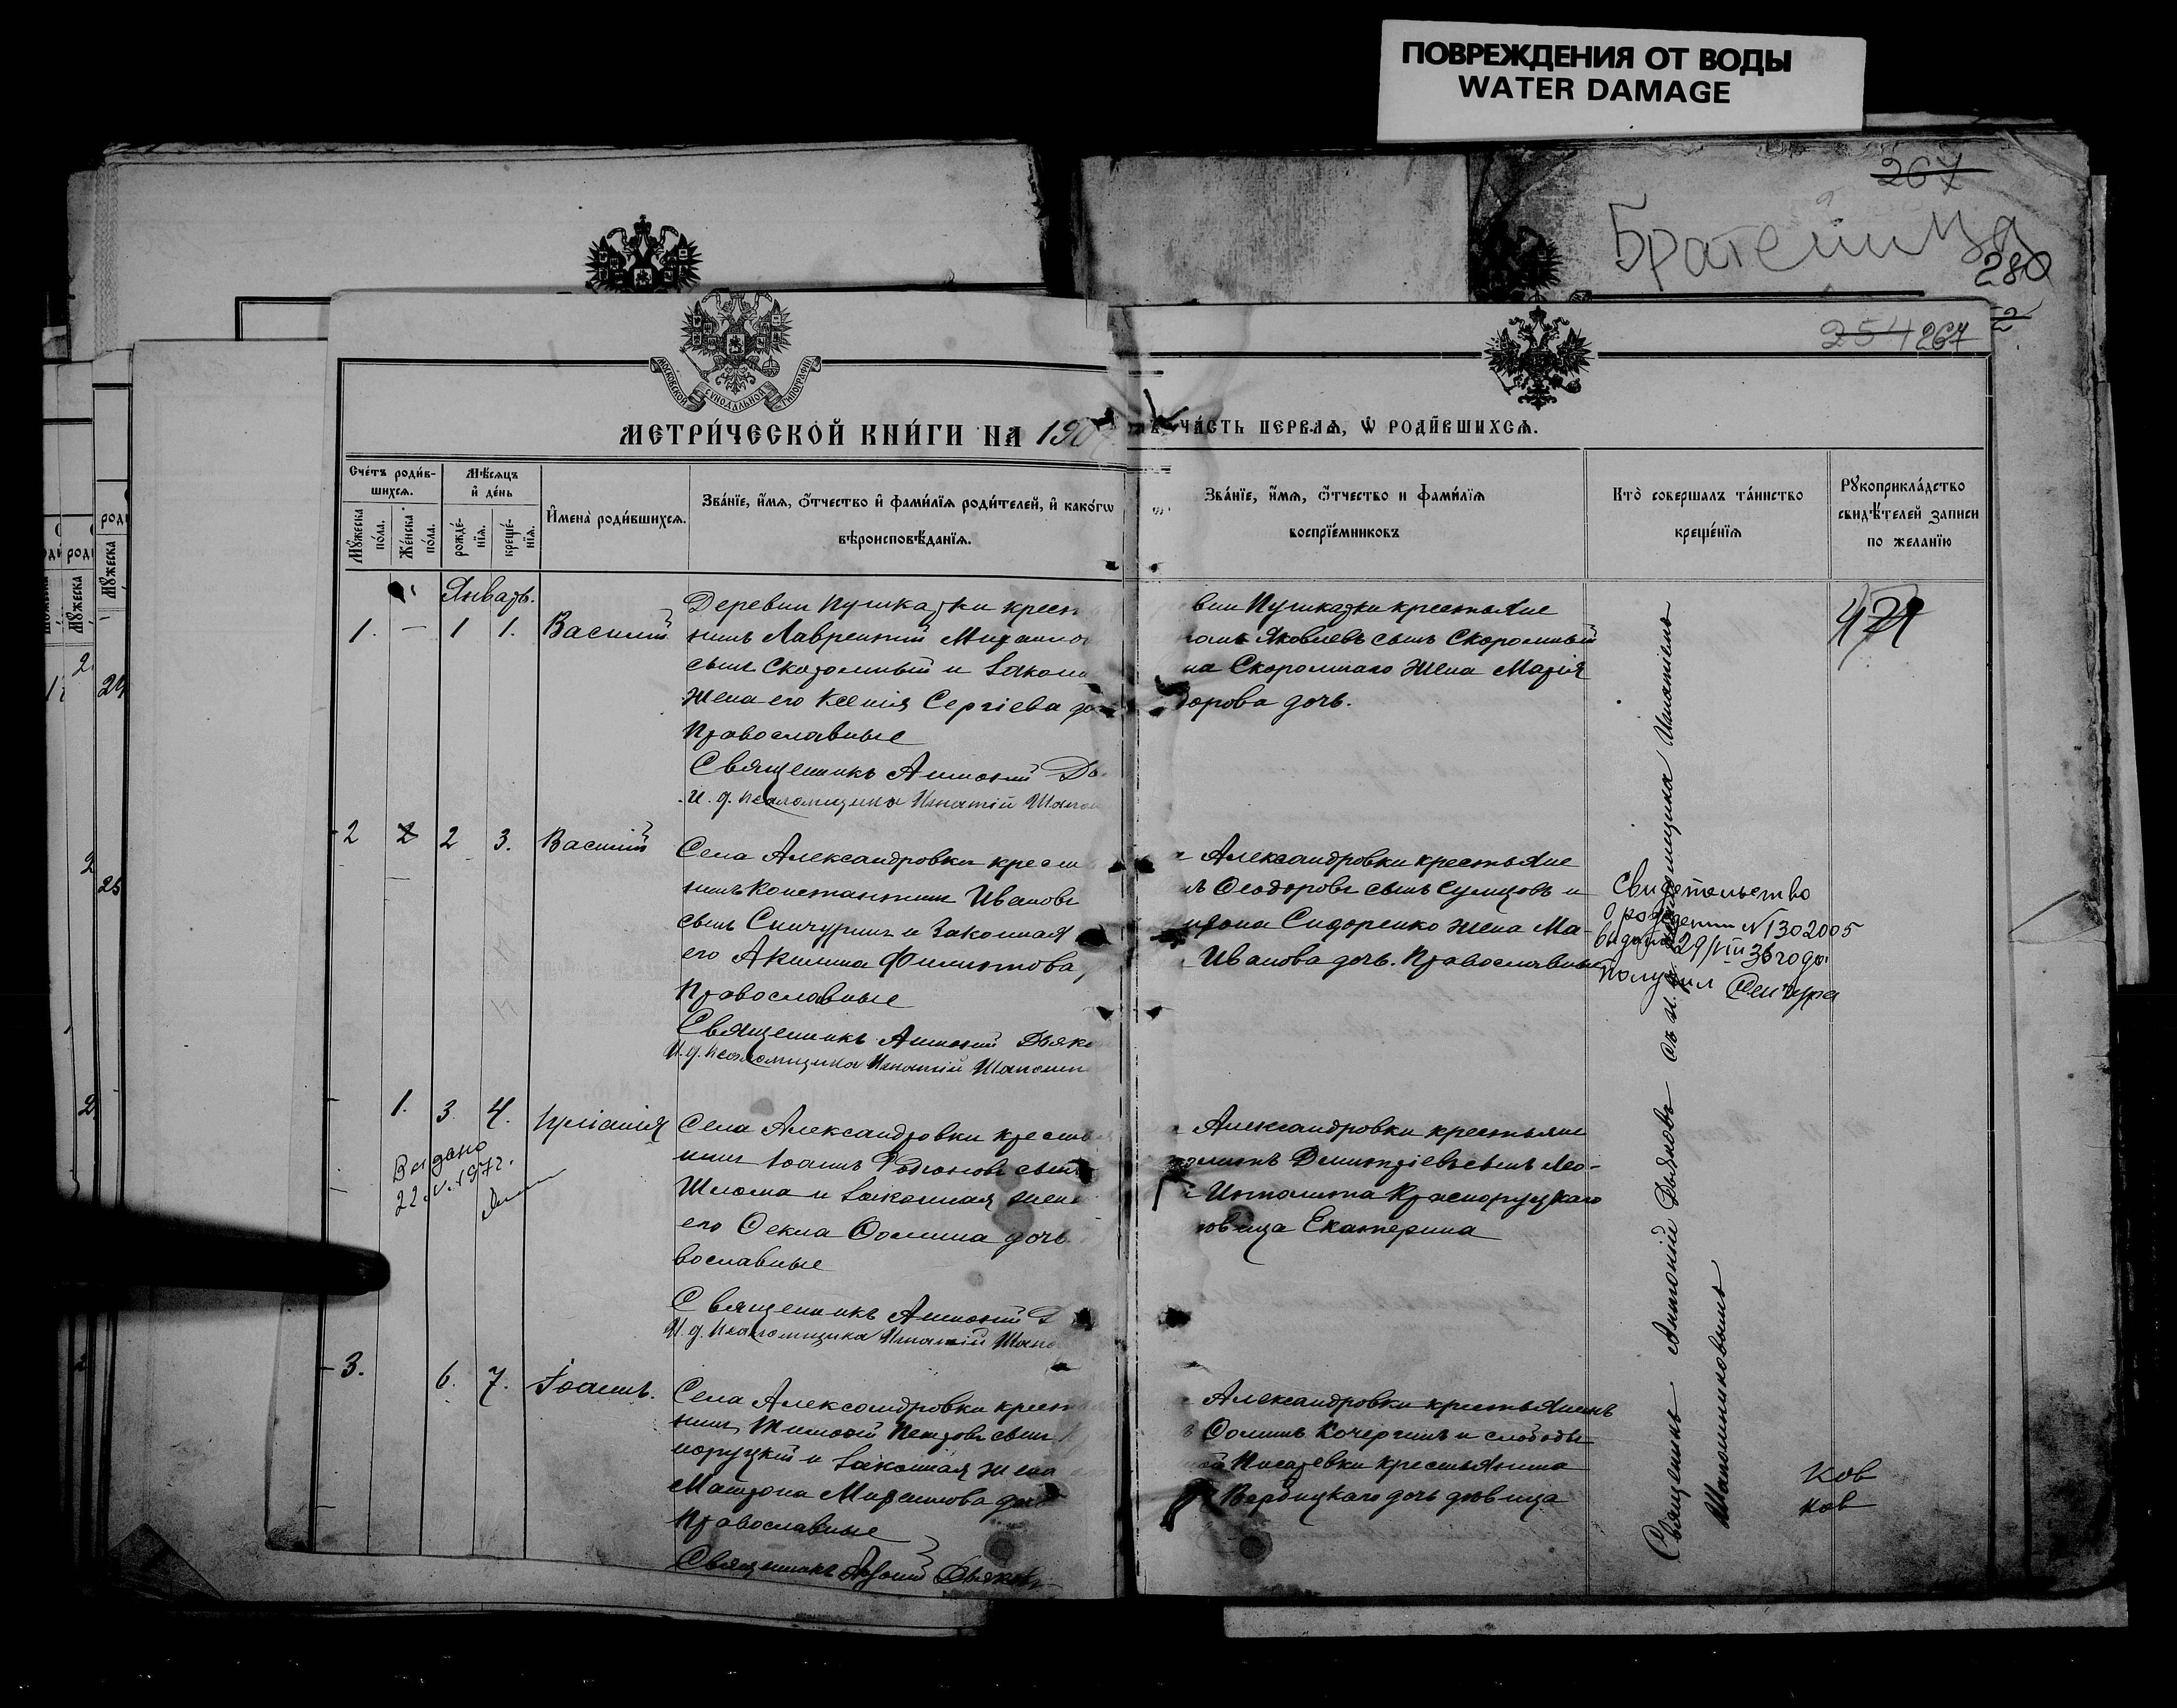 ПОВРЕЖДЕНИЯ ОТ ВОДЫ
WATER DAMAGE
267
280
2
254 267
МОСКОВСКОЙ СУНОДАЛЬНОЙ ТИПОГРАФІИ
МЕТРИ́ЧЕСКОЙ КНИ́ГИ НА 190
ЧА́СТЬ ПЕРВАѦ, Ѡ РОДИ́ВШИХСѦ.
Сче́тъ роди́в-
шихсѧ.
Мѣ́сѧцъ
и҆ де́нь
Мꙋ́жеска по́ла.
Же́нска по́ла.
рожде́-
нїѧ.
креще́-
нїѧ.
И҆мена̀ роди́вшихсѧ.
Зва́нїе, и҆́мѧ, ѻ҆́тчество и҆ фами́лїѧ роди́телей, и҆ како́гѡ
вѣроисповѣ́данїѧ.
Зва́нїе, и҆́мѧ, ѻ҆́тчество и фами́лїѧ
воспрїе́мниковъ
Кто̀ соверша́лъ та́инство
креще́нїѧ
Рꙋкоприкла́дство
свидѣ́телей записи
по жела́нїю
Январь.
1. — 1 1. Василій
Деревни Пушкарки крестья
нинъ Лаврентій Михаило
сынъ Скоромный и законн
жена его Ксенія Сергіева до
Православные
Священникъ Антоній Дь
И. д. псаломщика Игнатій Шапош
вни Пушкарки крестьяне
Яковлевъ сынъ Скоромный
на Скоромнаго жена Марія
дорова дочь.
2 2 2 3. Василій
Села Александровки крестья
нинъ Константинъ Ивановъ
сынъ Синчугинъ и законная
его Акилина Филиппова
Православные
Священникъ Антоній Дьяко
И. д. псаломщика Игнатій Шапошн
Александровки крестьяне
ъ Ѳеодоровъ сынъ Сумцовъ и
Сидоренко жена Ма-
Иванова дочь. Православные
Свидетельство
о рождении N 1302005
выдано 29/VIII 36 года
Получил
1. 3. 4. Иуліанія
Выдано
22.V.197г.
Села Александровки крестья
нинъ Іоаннъ Родіоновъ сынъ
Шлома и законная жена
его Ѳекла Ѳомина дочь
вославные
Священникъ Антоній Д
И. д. псаломщика Игнатій Шапо
Александровки крестьяне
Димитріевъ сынъ Лео-
Ипполита Красноруцкаго
ѣвица Екатерина
3. 6. 7. Іоаннъ.
Села Александровки крестья
нинъ Тимоѳей Петровъ сынъ
норуцкій и законная жена
Матрона Михаилова дочь
Православные
Священникъ Антоній Дьяковъ
Александровки крестьянинъ
Ѳоминъ Кочергинъ и слободы
Писаревки крестьянина
Вербицкаго дочь дѣвица
Священникъ Антоній Дьяковъ съ и. д. псаломщика Игнатіемъ
Шапошниковымъ
ков
ков